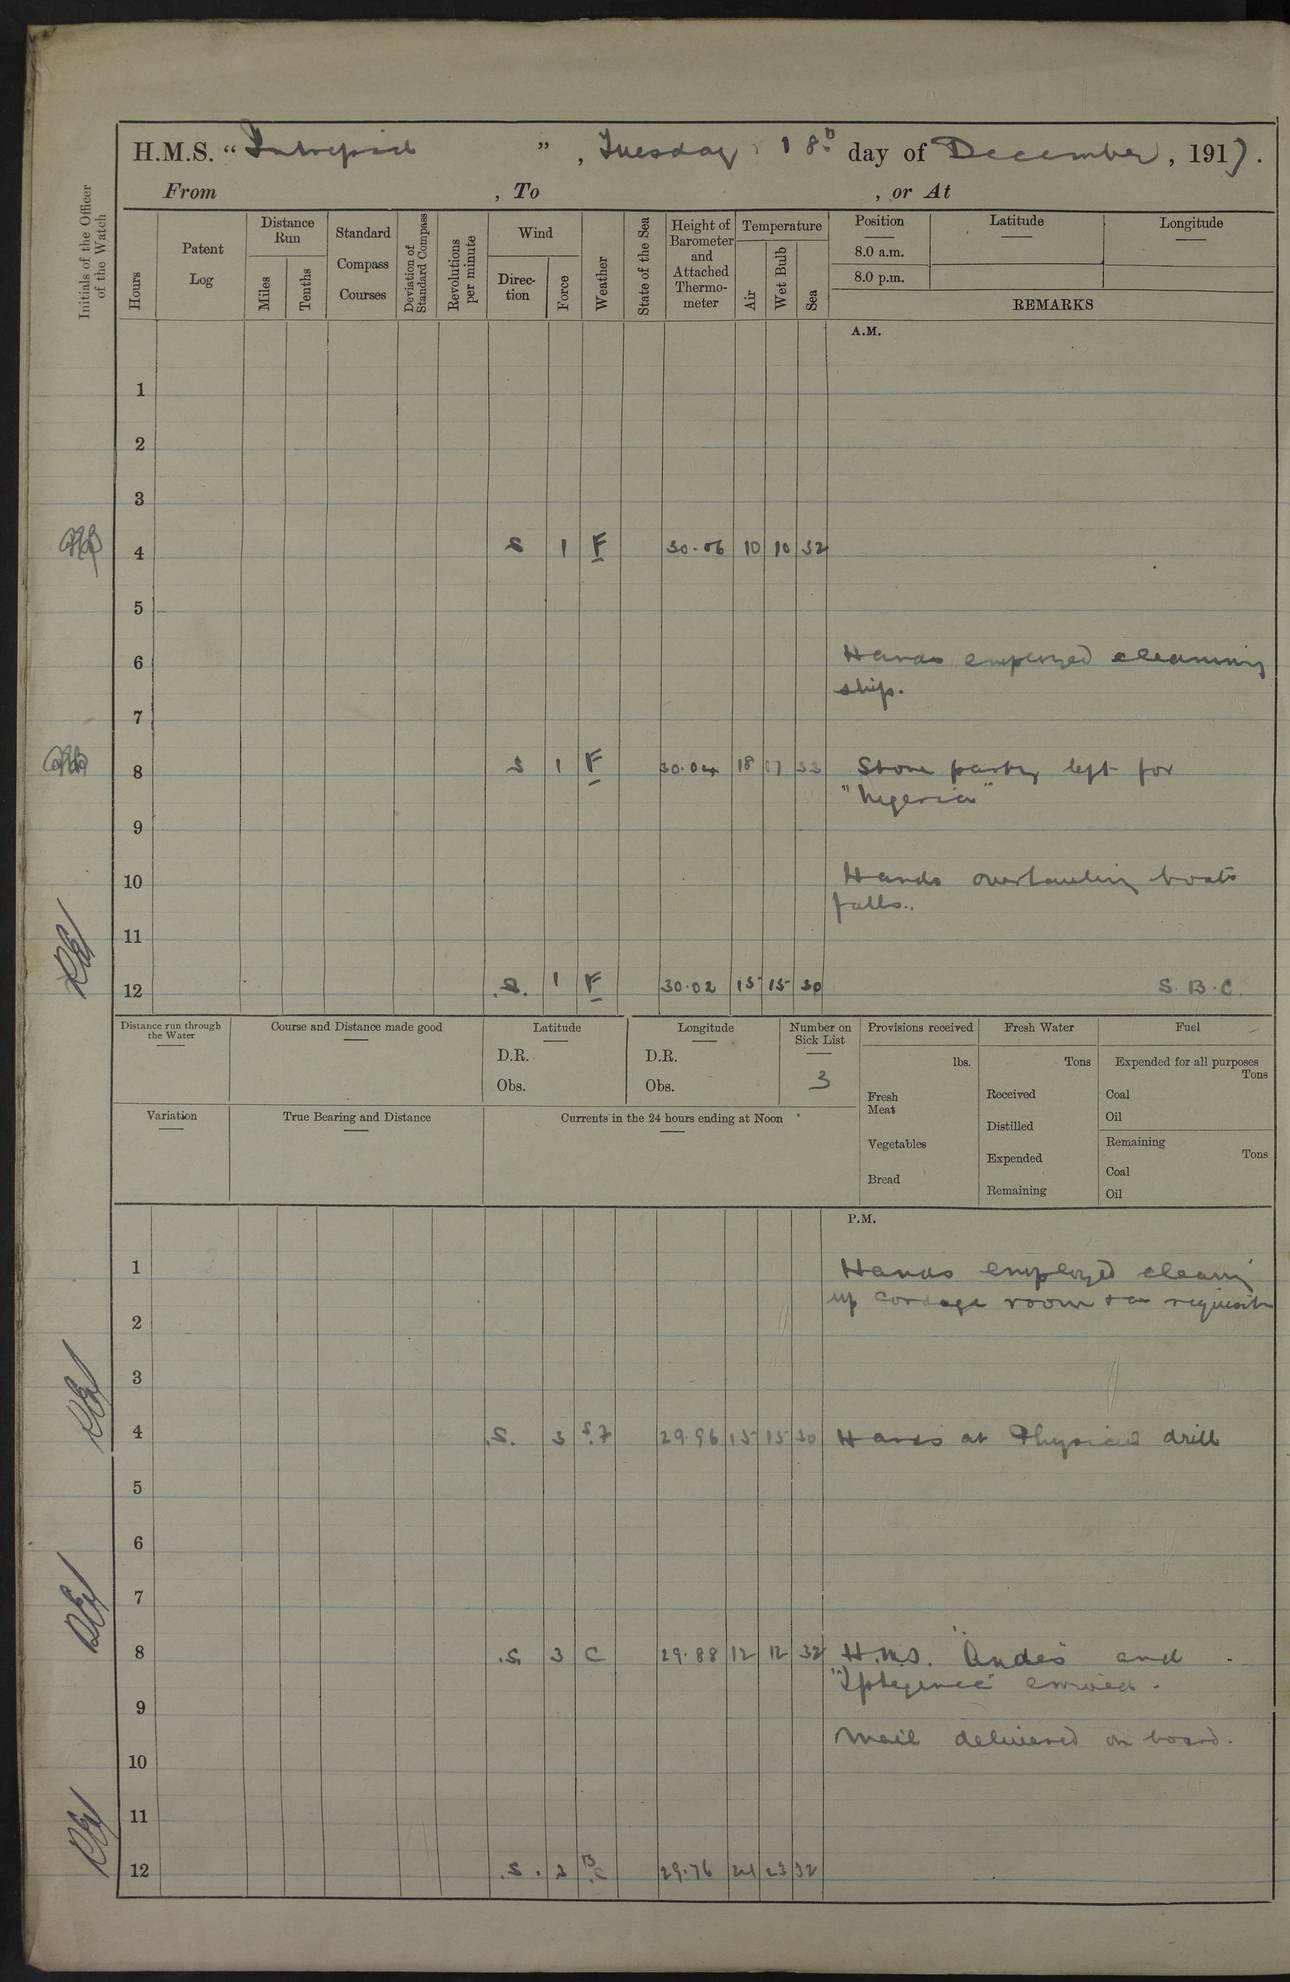 H.M.S. “ Intrepid ” , Tuesday , 18th day of December , 1917 .
From , To , or At
Initials of the Officer of the Watch
Hours
Patent Log
Distance Run
Miles
Tenths
Standard Compass Courses
Deviation of Standard Compass
Revolutions per minute
Wind
Direc- tion
Force
Weather
State of the Sea
Height of Barometer and Attached Thermo- meter
Temperature
Air
Wet Bulb
Sea
Position
8.0 a.m.
8.0 p.m.
Latitude
Longitude
REMARKS
A.M.
1
2
3
4 S 1 F 30.06 10 10 32
5
6 Hands employed cleaning
ship.
7
8 S 1 F 30.04 18 17 33 Store party left for
"Nigeria"
9
10 Hands overhauling boats
falls.
11
12 S. 1 F 30.02 15 15 30 S. B. C.
Distance run through the Water
Course and Distance made good
Latitude
D.R.
Obs.
Longitude
D.R.
Obs.
Number on Sick List
3
Provisions received
lbs.
Fresh Meat
Vegetables
Bread
Fresh Water
Tons
Received
Distilled
Expended
Remaining
Fuel
Expended for all purposes
Tons
Coal
Oil
Remaining
Tons
Coal
Oil
Variation
True Bearing and Distance
Currents in the 24 hours ending at Noon
P.M.
1 Hands employed cleaning
up cordage room & as requisite
2
3
4 S. 3 S.F 29.96 15 15 30 Hands at Physical drill
5
6
7
8 S. 3 C 29.88 12 12 32 H.M.S. "Andes" and
"Iphegenee" arrived.
9
Mail delivered on board.
10
11
12 S. 3 B.C 29.76 24 23 32